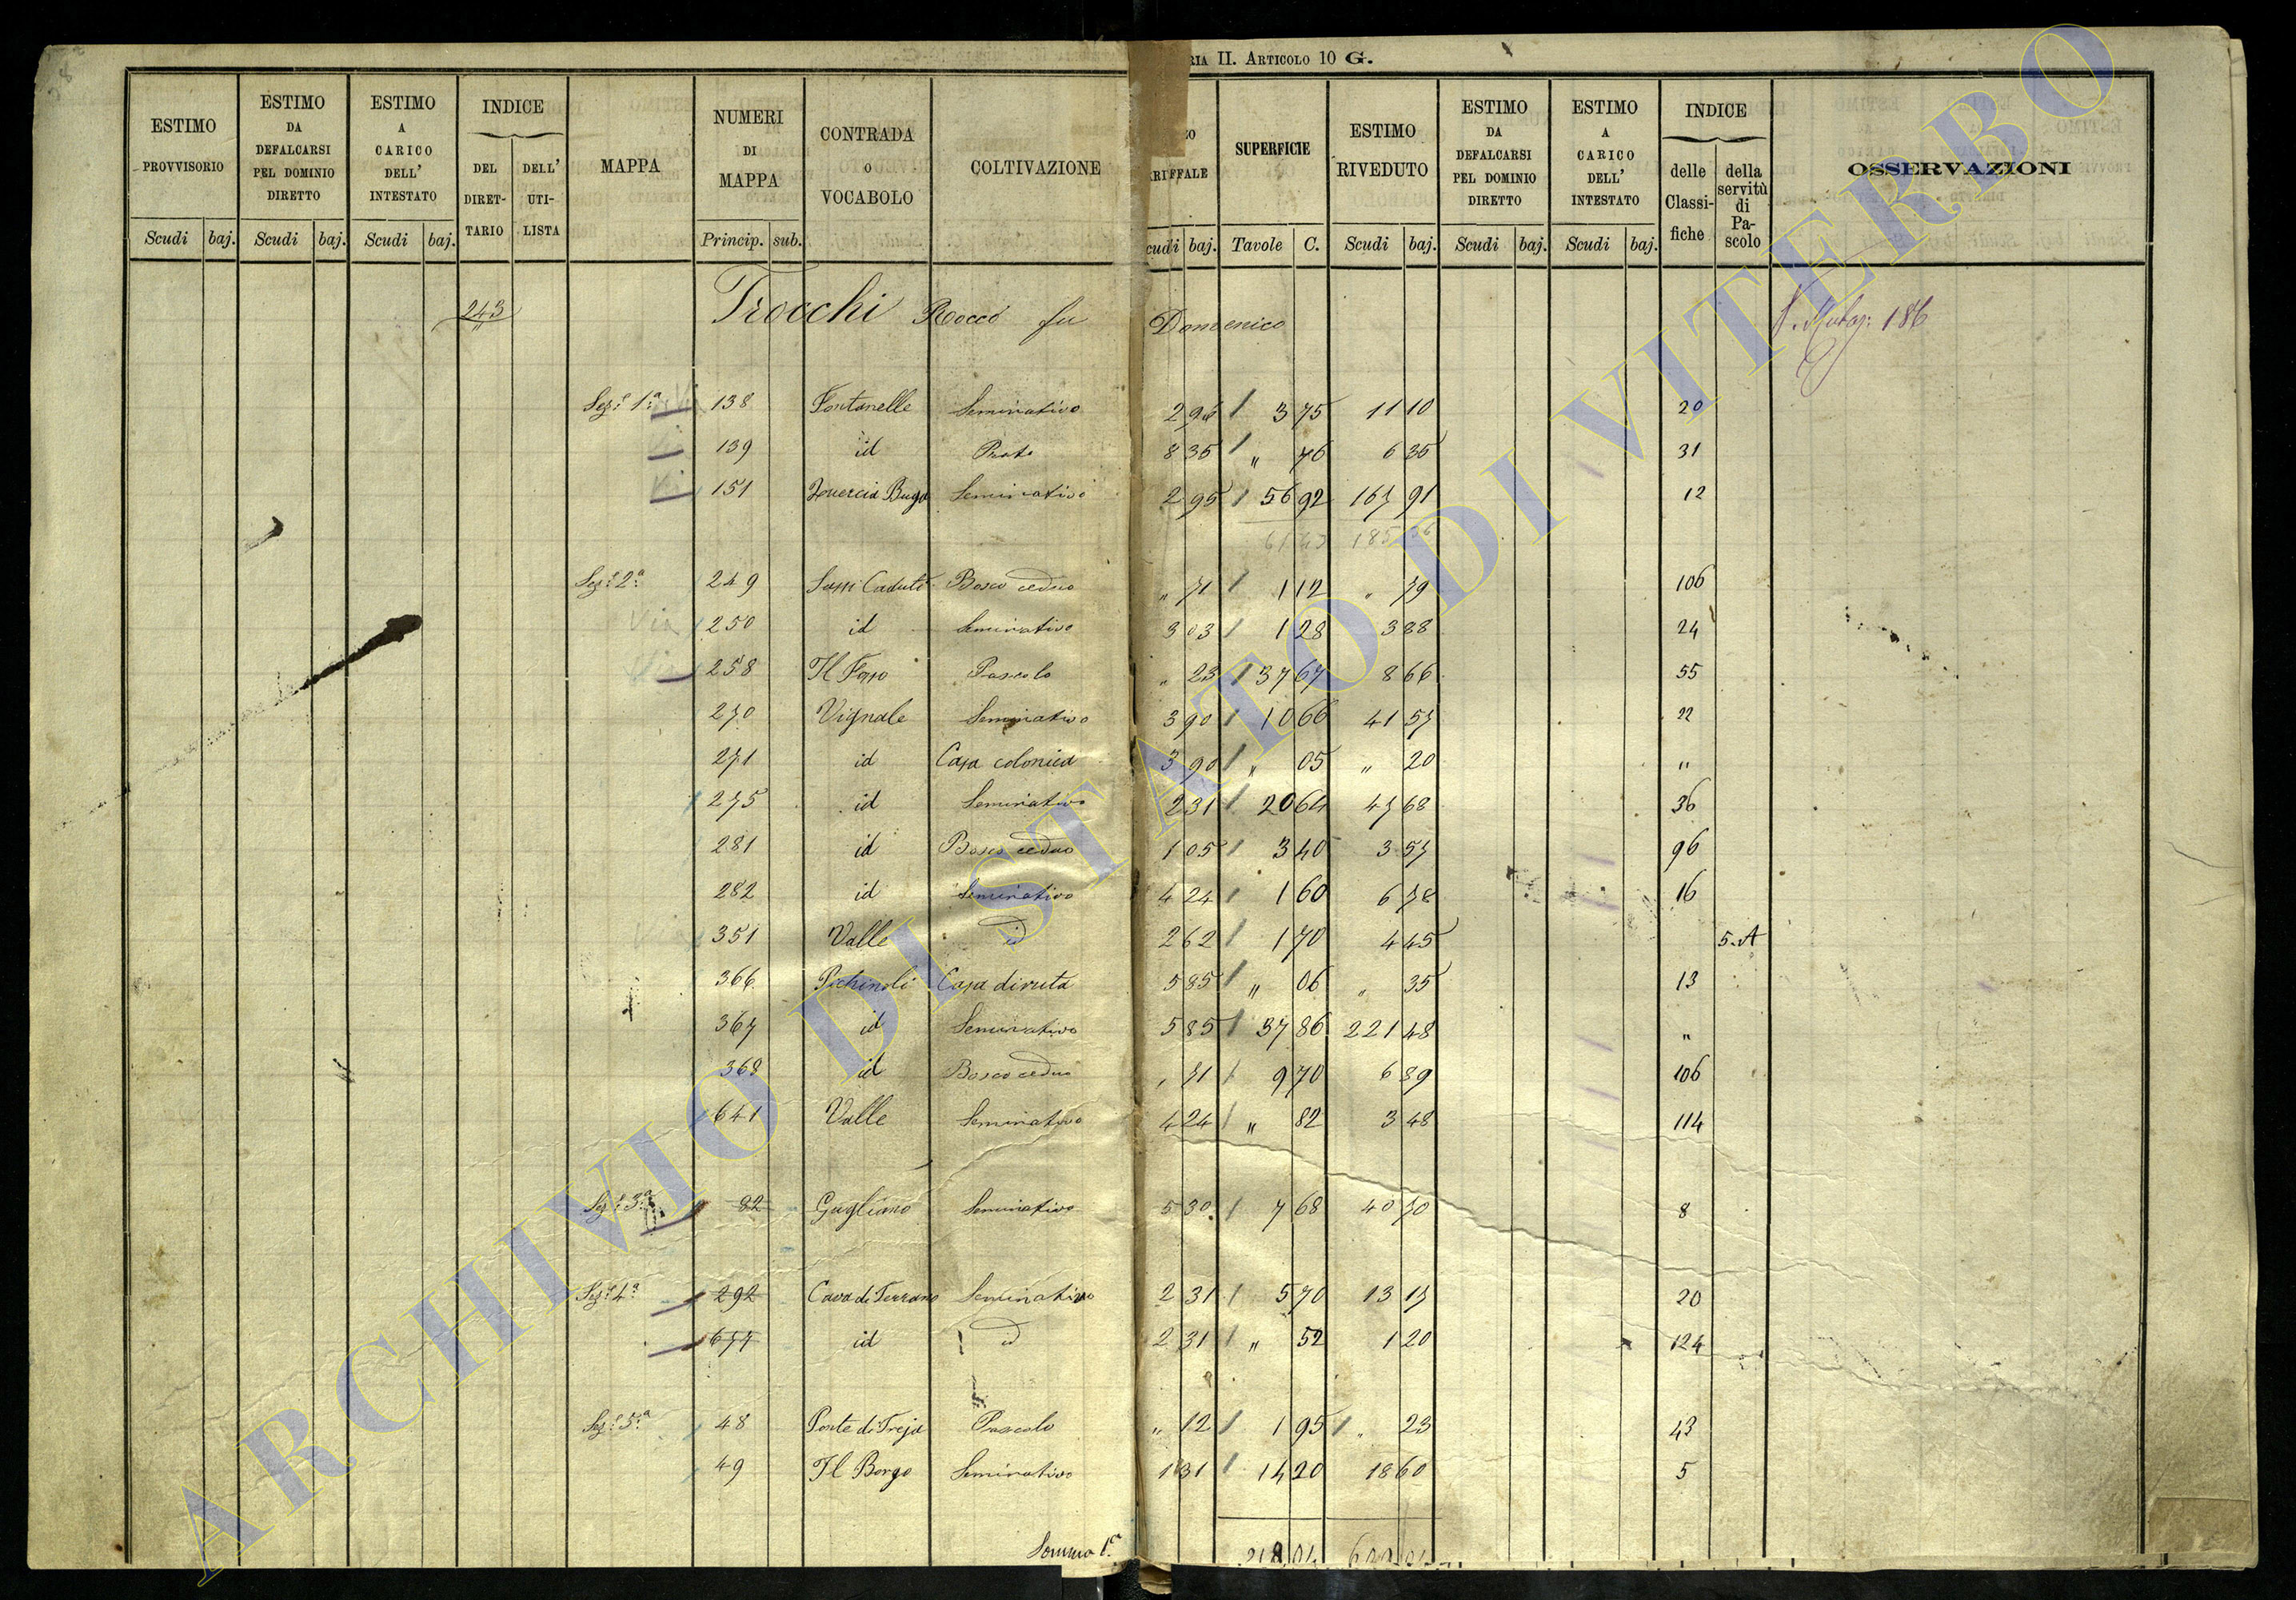 RIA II. ARTICOLO 10 G.
ESTIMO PROVVISORIO Scudi baj.
ESTIMO DA DEFALCARSI PEL DOMINIO DIRETTO Scudi baj.
ESTIMO A CARICO DELL' INTESTATO Scudi baj.
INDICE DEL DIRET-TARIO DELL' UTI-LISTA
MAPPA
NUMERI DI MAPPA Princip. sub.
CONTRADA o VOCABOLO
COLTIVAZIONE
RIFFALE cudi baj.
SUPERFICIE Tavole C.
ESTIMO RIVEDUTO Scudi baj.
ESTIMO DA DEFALCARSI PEL DOMINIO DIRETTO Scudi baj.
ESTIMO A CARICO DELL' INTESTATO Scudi baj.
INDICE delle Classi-fiche della servitù di Pa-scolo
OSSERVAZIONI
243 Trocchi Rocco fu Domenico 186
Sez.e 1.a 138 Fontanelle Seminativo 2 96 3 75 11 10 20
139 id Prato 8 35 " 76 6 35 31
151 Seminativo 2 95 56 92 167 91 12
Sez.e 2.a 249 Sassi Caduti Bosco ceduo " 71 1 12 " 79 106
Via 250 id Seminativo 3 03 1 28 3 88 24
Via 258 Il Fosso Pascolo " 23 37 67 8 66 55
270 Vignale Seminativo 3 90 10 66 41 57 22
271 id Casa colonica 3 90 " 05 " 20 "
275 id Seminativo 2 31 20 64 47 68 36
281 id Bosco ceduo 1 05 3 40 3 57 96
282 id Seminativo 4 24 1 60 6 78 16
351 Valle id 2 62 1 70 4 45 5.A
366 Pichinoli Casa diruta 5 85 " 06 " 35 13
367 id Seminativo 5 85 37 86 221 48 "
368 id Bosco ceduo " 71 9 70 6 89 106
641 Valle Seminativo 4 24 " 82 3 48 114
Sez.e 3.a 82 Gugliano Seminativo 5 30 7 68 40 70 8
Sez.e 4.a 292 Cava di Terrano Seminativo 2 31 5 70 13 17 20
677 id id 2 31 " 52 1 20 124
Sez.e 5.a 48 Ponte di Treja Pascolo " 12 1 95 " 23 43
49 Il Borgo Seminativo 1 31 14 20 18 60 5
Somma
ARCHIVIO DI STATO DI VITERBO